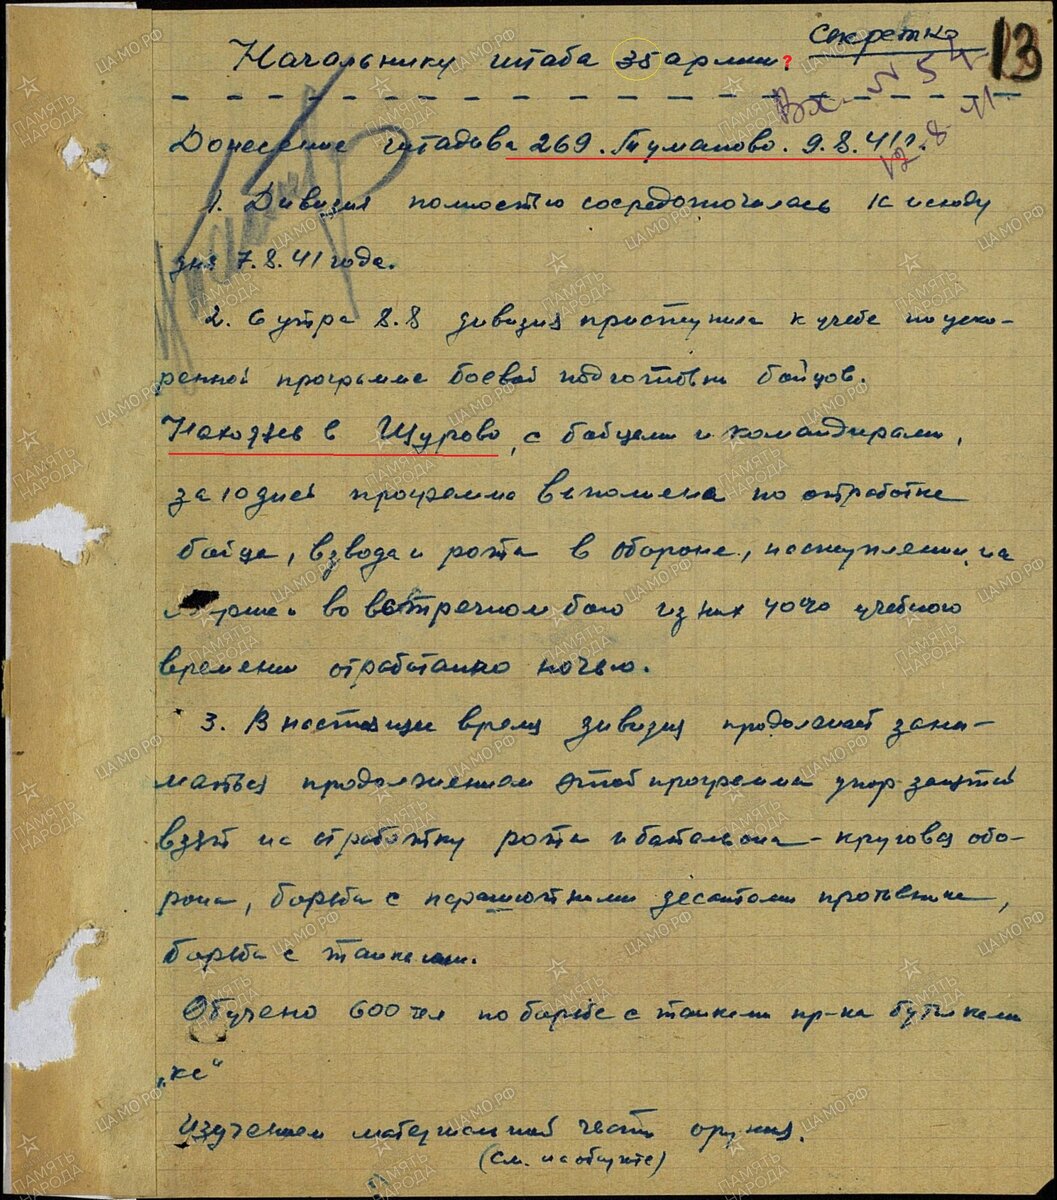 Секретно
13
Начальнику штаба 35 армии?
Вх. N 54
12 8 41
Донесение штадива 269. Туманово. 9.8.41 г.
1. Дивизия полностью сосредоточилась к исходу
дня 7.8.41 года.
2. С утра 8.8 дивизия приступила к учебе по уско-
ренной программе боевой подготовки бойцов.
Находясь в Щурово, с бойцами и командирами,
за 10 дней программа выполнена по отработке
бойца, взвода и роты в обороне, наступлении, на
марше и во встречном бою из них 40% учебного
времени отработанно ночью.
3. В настоящее время дивизия продолжает зани-
маться продолжением этой программы упор занятий
взят на отработку роты и батальона - круговая обо-
рона, борьба с парашютными десантами противника,
борьба с танками.
Обучено 600 чел по борьбе с танками пр-ка бутылками
"кс"
Изучением материальной часть оружия.
(см. на обороте)
ПАМЯТЬ НАРОДА
ЦА МО РФ